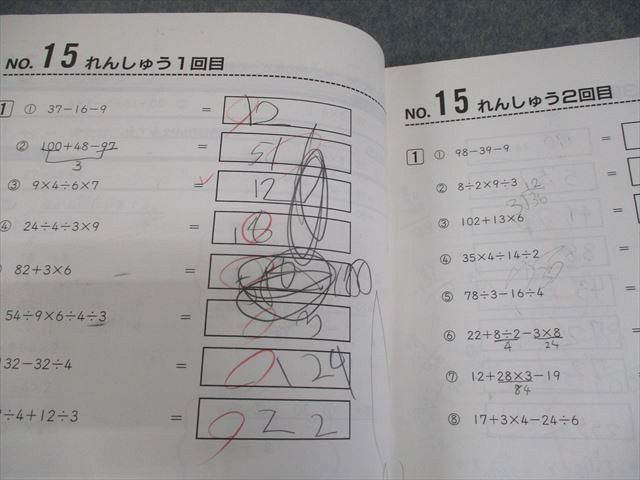 NO. 15 れんしゅう1回目
1 ① 37-16-9 = 12
② 100+48-97 = 51
3
③ 9×4÷6×7 = 12
④ 24÷4÷3×9 = 18
82+3×6 = 100
54÷9×6÷4÷3 = 3
132-32÷4 = 124
÷4+12÷3 = 22
NO. 15 れんしゅう2回目
1 ① 98-39-9 =
② 8÷2×9÷3 12 =
③ 102+13×6 =
④ 35×4÷14÷2
⑤ 78÷3-16÷4
⑥ 22+8÷2-3×8
4 24
⑦ 12+28×3-19
84
⑧ 17+3×4-24÷6